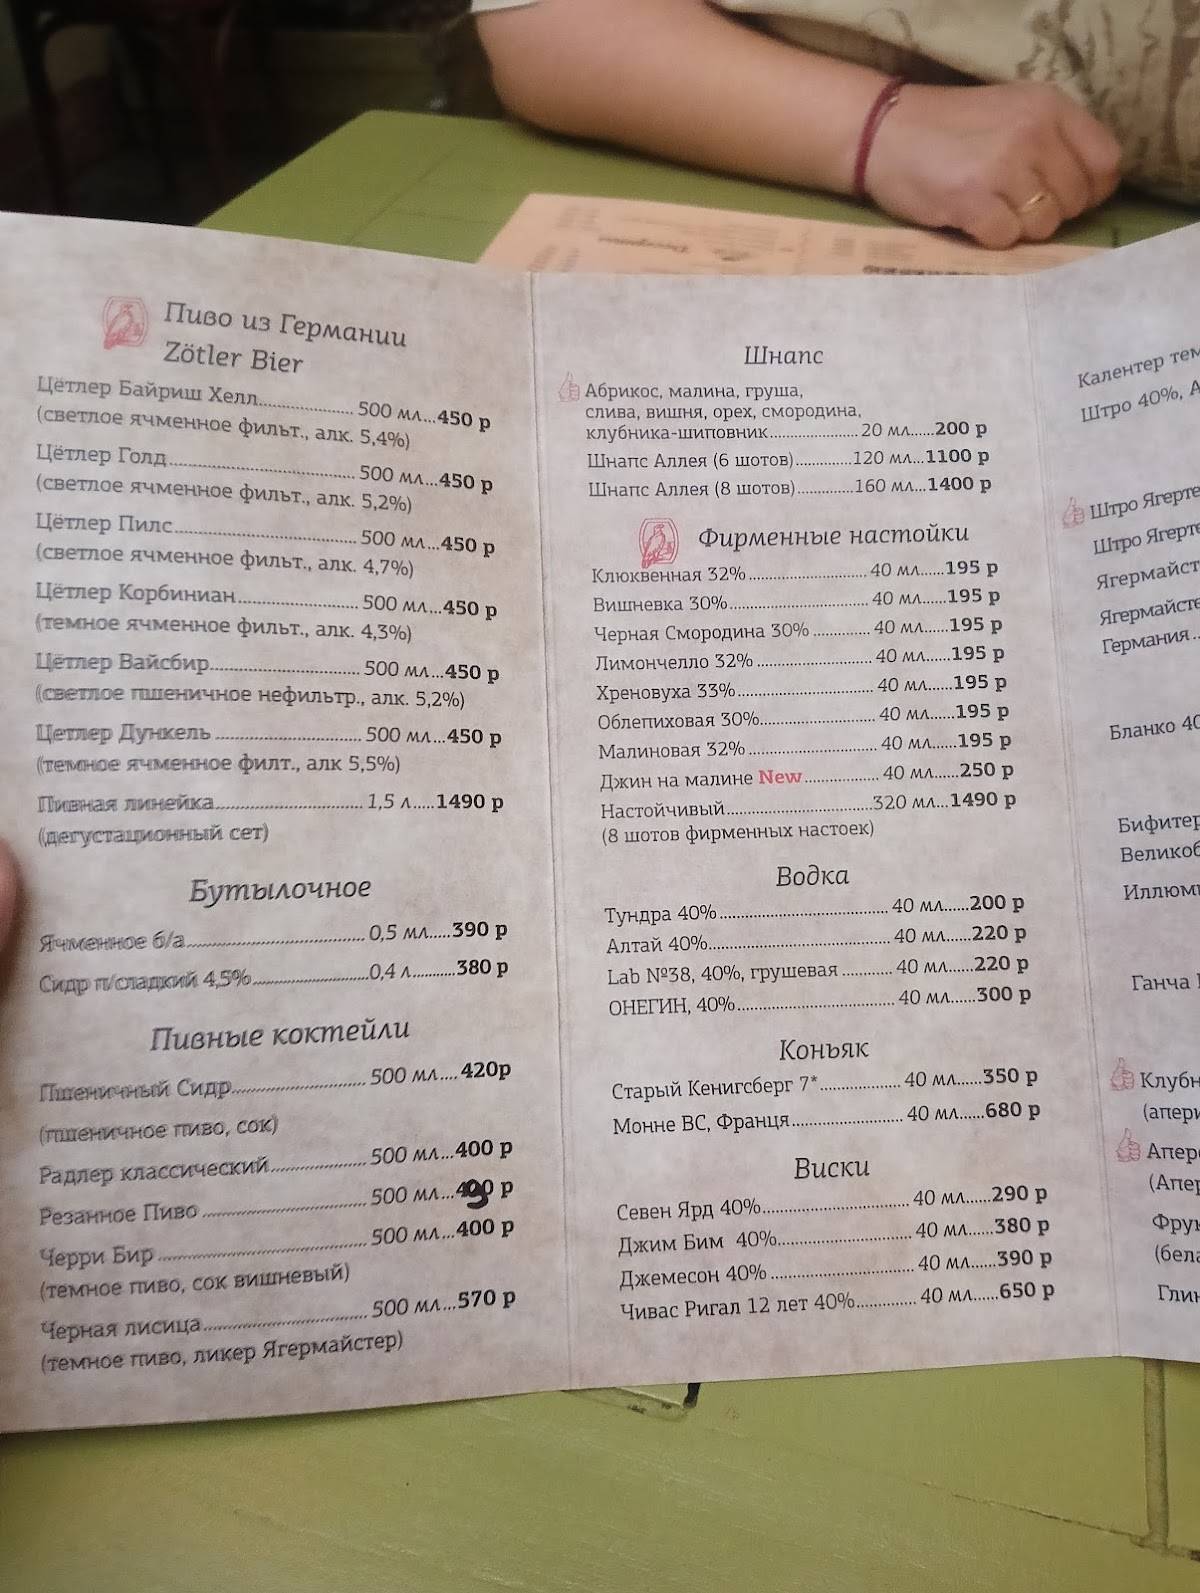 Пиво из Германии
Zötler Bier
Цётлер Байриш Хелл.......... 500 мл...450 р
(светлое ячменное фильт., алк. 5,4%)
Цётлер Голд.......... 500 мл...450 р
(светлое ячменное фильт., алк. 5,2%)
Цётлер Пилс.......... 500 мл...450 р
(светлое ячменное фильт., алк. 4,7%)
Цётлер Корбиниан.......... 500 мл...450 р
(темное ячменное фильт., алк. 4,3%)
Цётлер Вайсбир.......... 500 мл...450 р
(светлое пшеничное нефильтр., алк. 5,2%)
Цетлер Дункель.......... 500 мл...450 р
(темное ячменное филт., алк 5,5%)
Пивная линейка.......... 1,5 л.....1490 р
(дегустационный сет)
Бутылочное
Ячменное б/а.......... 0,5 мл.....390 р
Сидр п/сладкий 4,5%..........0,4 л..........380 р
Пивные коктейли
Пшеничный Сидр.......... 500 мл....420р
(пшеничное пиво, сок)
Радлер классический.......... 500 мл...400 р
Резанное Пиво.......... 500 мл...
Черри Бир.......... 500 мл...400 р
(темное пиво, сок вишневый)
Черная лисица.......... 500 мл...570 р
(темное пиво, ликер Ягермайстер)
Шнапс
Абрикос, малина, груша,
слива, вишня, орех, смородина,
клубника-шиповник.......... 20 мл......200 р
Шнапс Аллея (6 шотов)..........120 мл...1100 р
Шнапс Аллея (8 шотов)..........160 мл...1400 р
Фирменные настойки
Клюквенная 32%.......... 40 мл......195 р
Вишневка 30%.......... 40 мл......195 р
Черная Смородина 30% .......... 40 мл......195 р
Лимончелло 32%.......... 40 мл......195 р
Хреновуха 33%.......... 40 мл......195 р
Облепиховая 30%.......... 40 мл......195 р
Малиновая 32%.......... 40 мл......195 р
Джин на малине New.......... 40 мл......250 р
Настойчивый..........320 мл...1490 р
(8 шотов фирменных настоек)
Водка
Тундра 40%.......... 40 мл......200 р
Алтай 40%.......... 40 мл......220 р
Lab №38, 40%, грушевая .......... 40 мл......220 р
ОНЕГИН, 40%.......... 40 мл......300 р
Коньяк
Старый Кенигсберг 7*.......... 40 мл......350 р
Монне ВС, Франця.......... 40 мл......680 р
Виски
Севен Ярд 40%.......... 40 мл......290 р
Джим Бим 40%.......... 40 мл......380 р
Джемесон 40% .......... 40 мл......390 р
Чивас Ригал 12 лет 40%.......... 40 мл......650 р
Калентер тем
Штро 40%, А
Штро Ягерте
Штро Ягерте
Ягермайст
Ягермайсте
Германия..
Бланко 40
Бифитер
Великоб
Иллюми
Ганча
Клубн
(апери
Апер
(Апер
Фрук
(бела
Глин